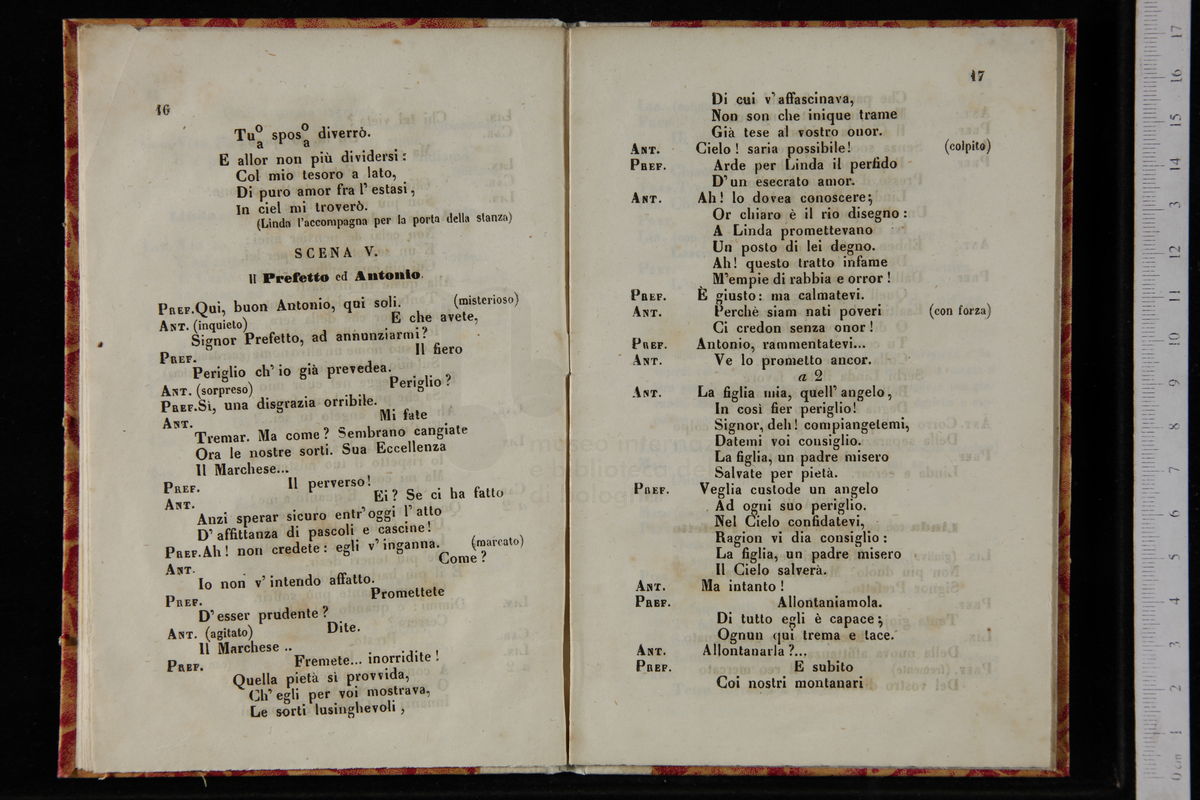 16
Tuº/a sposº/a diverrò.
E allor non più dividersi:
Col mio tesoro a lato,
Di puro amor fra l' estasi,
In ciel mi troverò.
(Linda l'accompagna per la porta della stanza)
SCENA V.
Il Prefetto ed Antonio.
PREF. Qui, buon Antonio, qui soli. (misterioso)
ANT. (inquieto) E che avete,
Signor Prefetto, ad annunziarmi?
PREF. Il fiero
Periglio ch' io già prevedea.
ANT. (sorpreso) Periglio?
PREF. Sì, una disgrazia orribile.
ANT. Mi fate
Tremar. Ma come? Sembrano cangiate
Ora le nostre sorti. Sua Eccellenza
Il Marchese...
PREF. Il perverso!
ANT. Ei? Se ci ha fatto
Anzi sperar sicuro entr' oggi l' atto
D' affittanza di pascoli e cascine!
PREF. Ah! non credete: egli v' inganna. (marcato)
ANT. Come?
Io non v' intendo affatto.
PREF. Promettete
D' esser prudente?
ANT. (agitato) Dite.
Il Marchese ..
PREF. Fremete... inorridite!
Quella pietà sì provvida,
Ch' egli per voi mostrava,
Le sorti lusinghevoli,
17
Di cui v' affascinava,
Non son che inique trame
Già tese al vostro onor.
ANT. Cielo! saria possibile! (colpito)
PREF. Arde per Linda il perfido
D' un esecrato amor.
ANT. Ah! lo dovea conoscere;
Or chiaro è il rio disegno:
A Linda promettevano
Un posto di lei degno.
Ah! questo tratto infame
M'empie di rabbia e orror!
PREF. È giusto: ma calmatevi.
ANT. Perchè siam nati poveri (con forza)
Ci credon senza onor!
PREF. Antonio, rammentatevi...
ANT. Ve lo prometto ancor.
a 2
ANT. La figlia mia, quell' angelo,
In così fier periglio!
Signor, deh! compiangetemi,
Datemi voi consiglio.
La figlia, un padre misero
Salvate per pietà.
PREF. Veglia custode un angelo
Ad ogni suo periglio.
Nel Cielo confidatevi,
Ragion vi dia consiglio:
La figlia, un padre misero
Il Cielo salverà.
ANT. Ma intanto!
PREF. Allontaniamola.
Di tutto egli è capace;
Ognun qui trema e tace.
ANT. Allontanarla?...
PREF. E subito
Coi nostri montanari